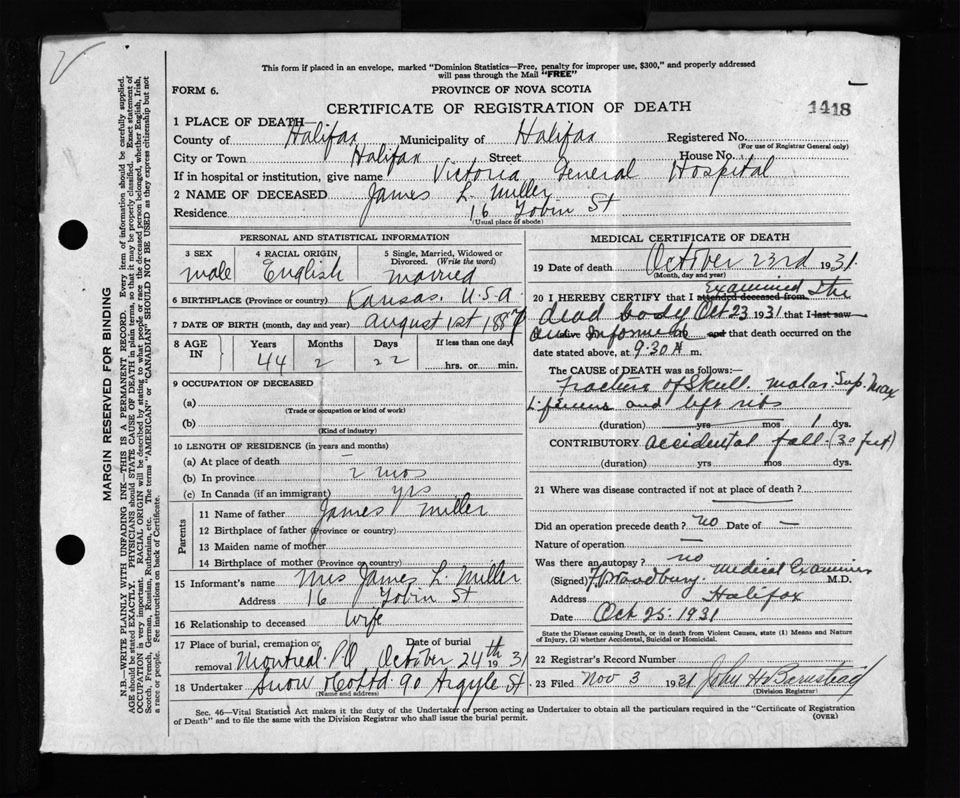 This form if placed in an envelope, marked "Dominion Statistics—Free, penalty for improper use, $300," and properly addressed
will pass through the Mail "FREE"
FORM 6.
PROVINCE OF NOVA SCOTIA
CERTIFICATE OF REGISTRATION OF DEATH
1418
1 PLACE OF DEATH
County of Halifax Municipality of Halifax Registered No.
(For use of Registrar General only)
City or Town Halifax Street House No.
If in hospital or institution, give name Victoria General Hospital
2 NAME OF DECEASED James L. Miller
Residence 16 Tobin St
(Usual place of abode)
PERSONAL AND STATISTICAL INFORMATION
3 SEX 4 RACIAL ORIGIN 5 Single, Married, Widowed or Divorced. (Write the word)
male English married
6 BIRTHPLACE (Province or country) Kansas. U.S.A.
7 DATE OF BIRTH (month, day and year) august 1st 1887
8 AGE IN Years Months Days If less than one day
44 2 22 hrs. or min.
9 OCCUPATION OF DECEASED
(a)
(Trade or occupation or kind of work)
(b)
(Kind of industry)
10 LENGTH OF RESIDENCE (in years and months)
(a) At place of death —
(b) In province 2 mos
(c) In Canada (if an immigrant) yrs
Parents
11 Name of father James Miller
12 Birthplace of father (Province or country)
13 Maiden name of mother
14 Birthplace of mother (Province or country)
15 Informant's name Mrs James L. Miller
Address 16 Tobin St
16 Relationship to deceased Wife
17 Place of burial, cremation or removal Montreal. P.Q Date of burial October 24th 1931
18 Undertaker Snow & Co Ltd 90 Argyle St
(Name and address)
MEDICAL CERTIFICATE OF DEATH
19 Date of death October 23rd 1931.
(Month, day and year)
20 I HEREBY CERTIFY that I attended deceased from Examined the
dead body Oct 23 1931 that I last saw
and that death occurred on
date stated above, at 9.30 A m.
The CAUSE of DEATH was as follows:
Fracture of Skull. malar. Sup. Max
L. femur and left ribs
(duration) yrs mos 1 dys.
CONTRIBUTORY accidental fall. (30 feet)
(duration) yrs mos dys.
21 Where was disease contracted if not at place of death?
Did an operation precede death? no Date of —
Nature of operation —
Was there an autopsy? no
(Signed) Woodbury. Medical Examiner M.D.
Address Halifax
Date Oct 25. 1931
State the Disease causing Death, or in death from Violent Causes, state (1) Means and Nature
of Injury, (2) whether Accidental, Suicidal or Homicidal.
22 Registrar's Record Number
23 Filed Nov 3 1931 John H Barnstead
(Division Registrar)
Sec. 46—Vital Statistics Act makes it the duty of the Undertaker or person acting as Undertaker to obtain all the particulars required in the "Certificate of Registration
of Death" and to file the same with the Division Registrar who shall issue the burial permit.
(OVER)
MARGIN RESERVED FOR BINDING
N.B.—WRITE PLAINLY WITH UNFADING INK—THIS IS A PERMANENT RECORD. Every item of information should be carefully supplied.
AGE should be stated EXACTLY. PHYSICIANS should STATE CAUSE OF DEATH in plain terms, so that it may be properly classified. Exact statement of
OCCUPATION is very important. RACIAL ORIGIN will be described by stating to what people or race the deceased person belonged, whether English, Irish,
Scotch, French, German, Russian, Ruthenian, etc. The terms "AMERICAN" or "CANADIAN" SHOULD NOT BE USED as they express citizenship but not
a race or people. See instructions on back of Certificate.